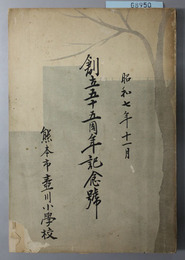 68950
昭和七年十一月
創立五十五周年記念號
熊本市壺川小學校